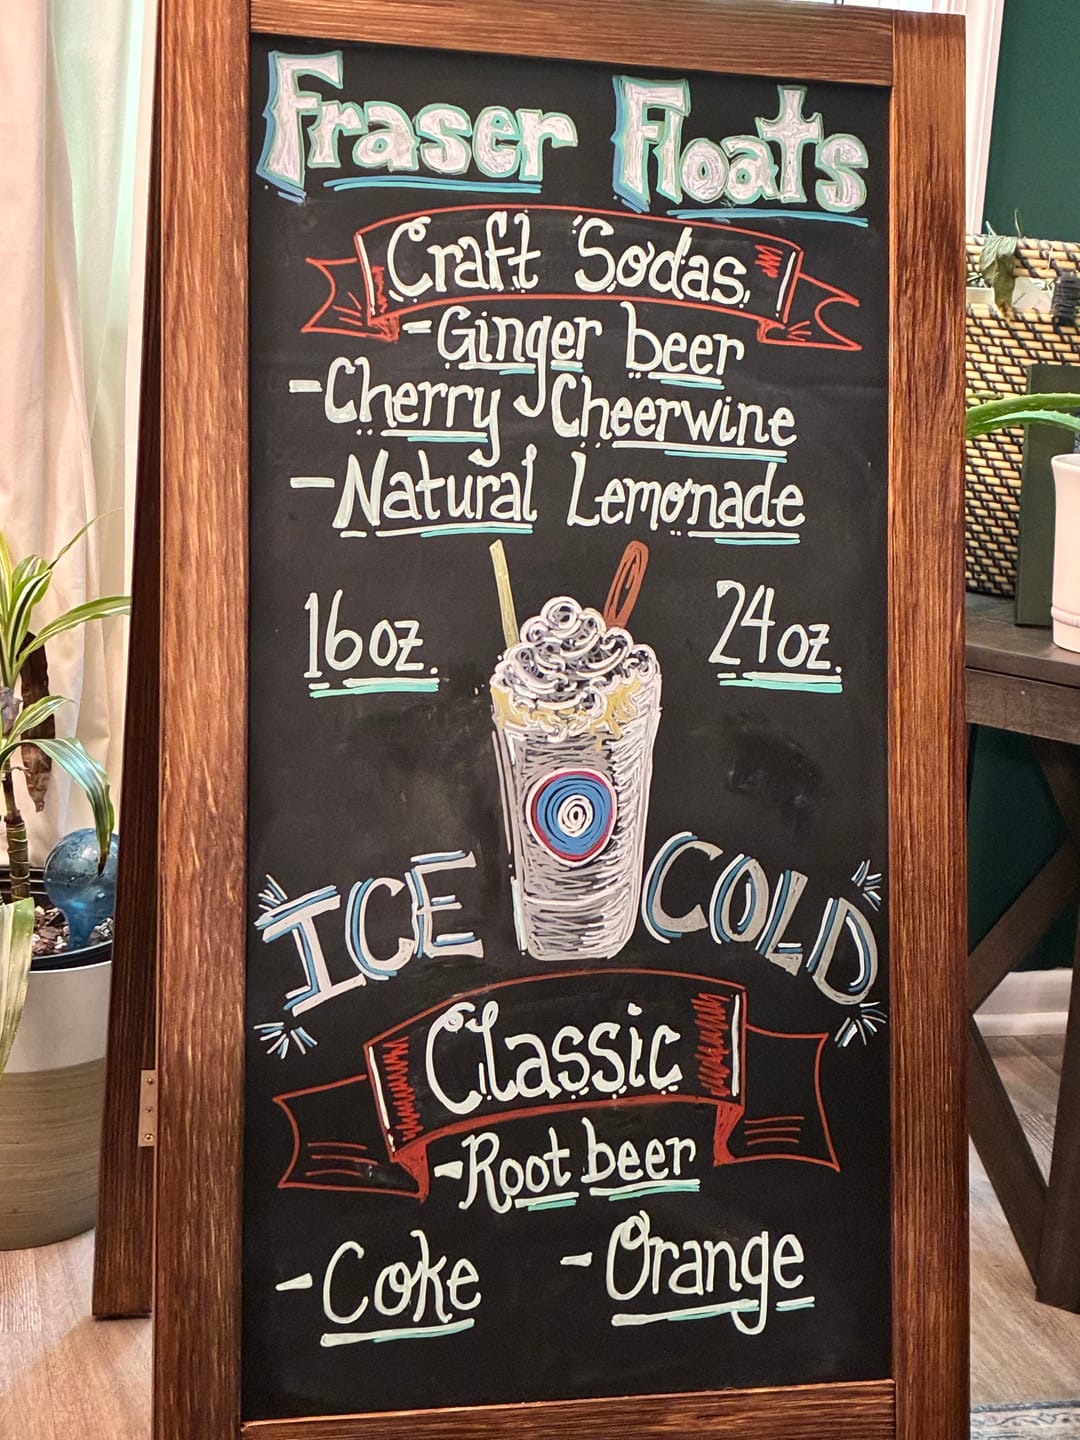 Fraser Floats
Craft Sodas
-Ginger beer
-Cherry Cheerwine
-Natural Lemonade
16oz. 24oz.
ICE COLD
Classic
-Root beer
-Coke -Orange